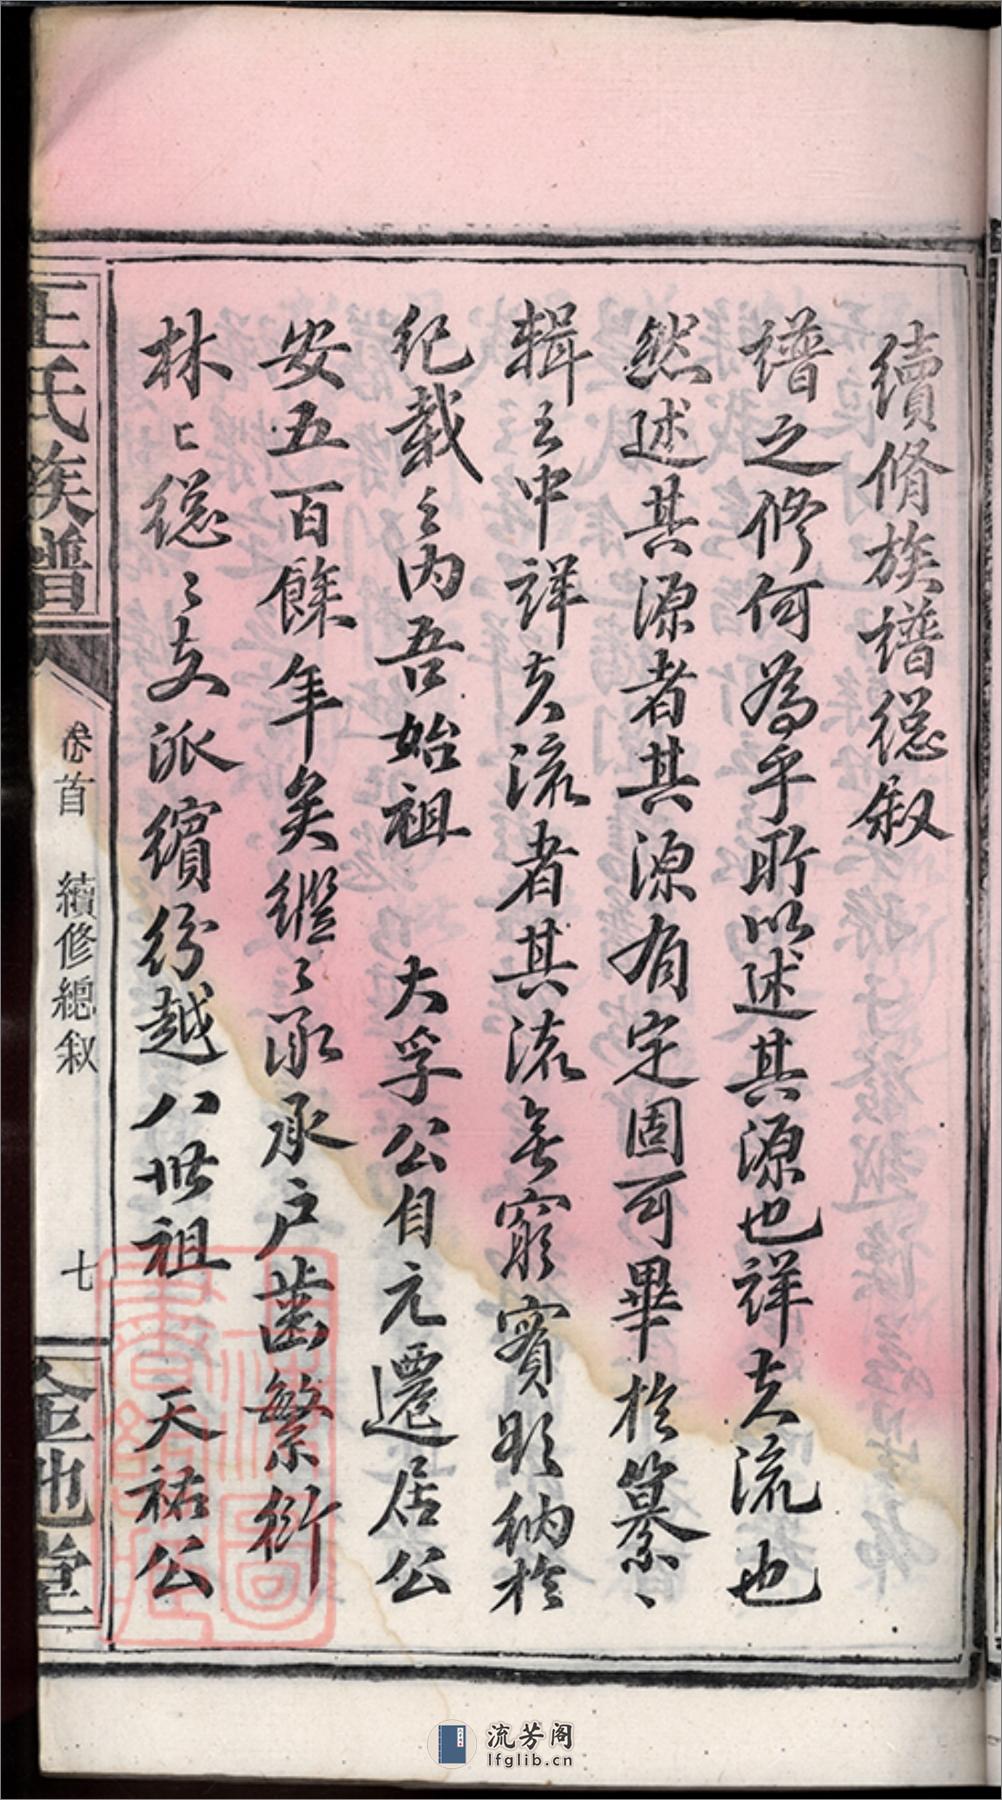 續脩族譜總叙
譜之修何為乎所以述其源也詳其流也
然述其源者其源有定固可畢於纂、
輯之中詳其流者其流無窮實難納於
紀載之内吾始祖 大孚公自元遷居公
安五百餘年矣繩〻承承戶齒繁衍
林〻總〻支派繽紛越八世祖 天祐公
王氏族譜
卷首 續修總叙
七
金地堂
流芳阁
lfglib.cn